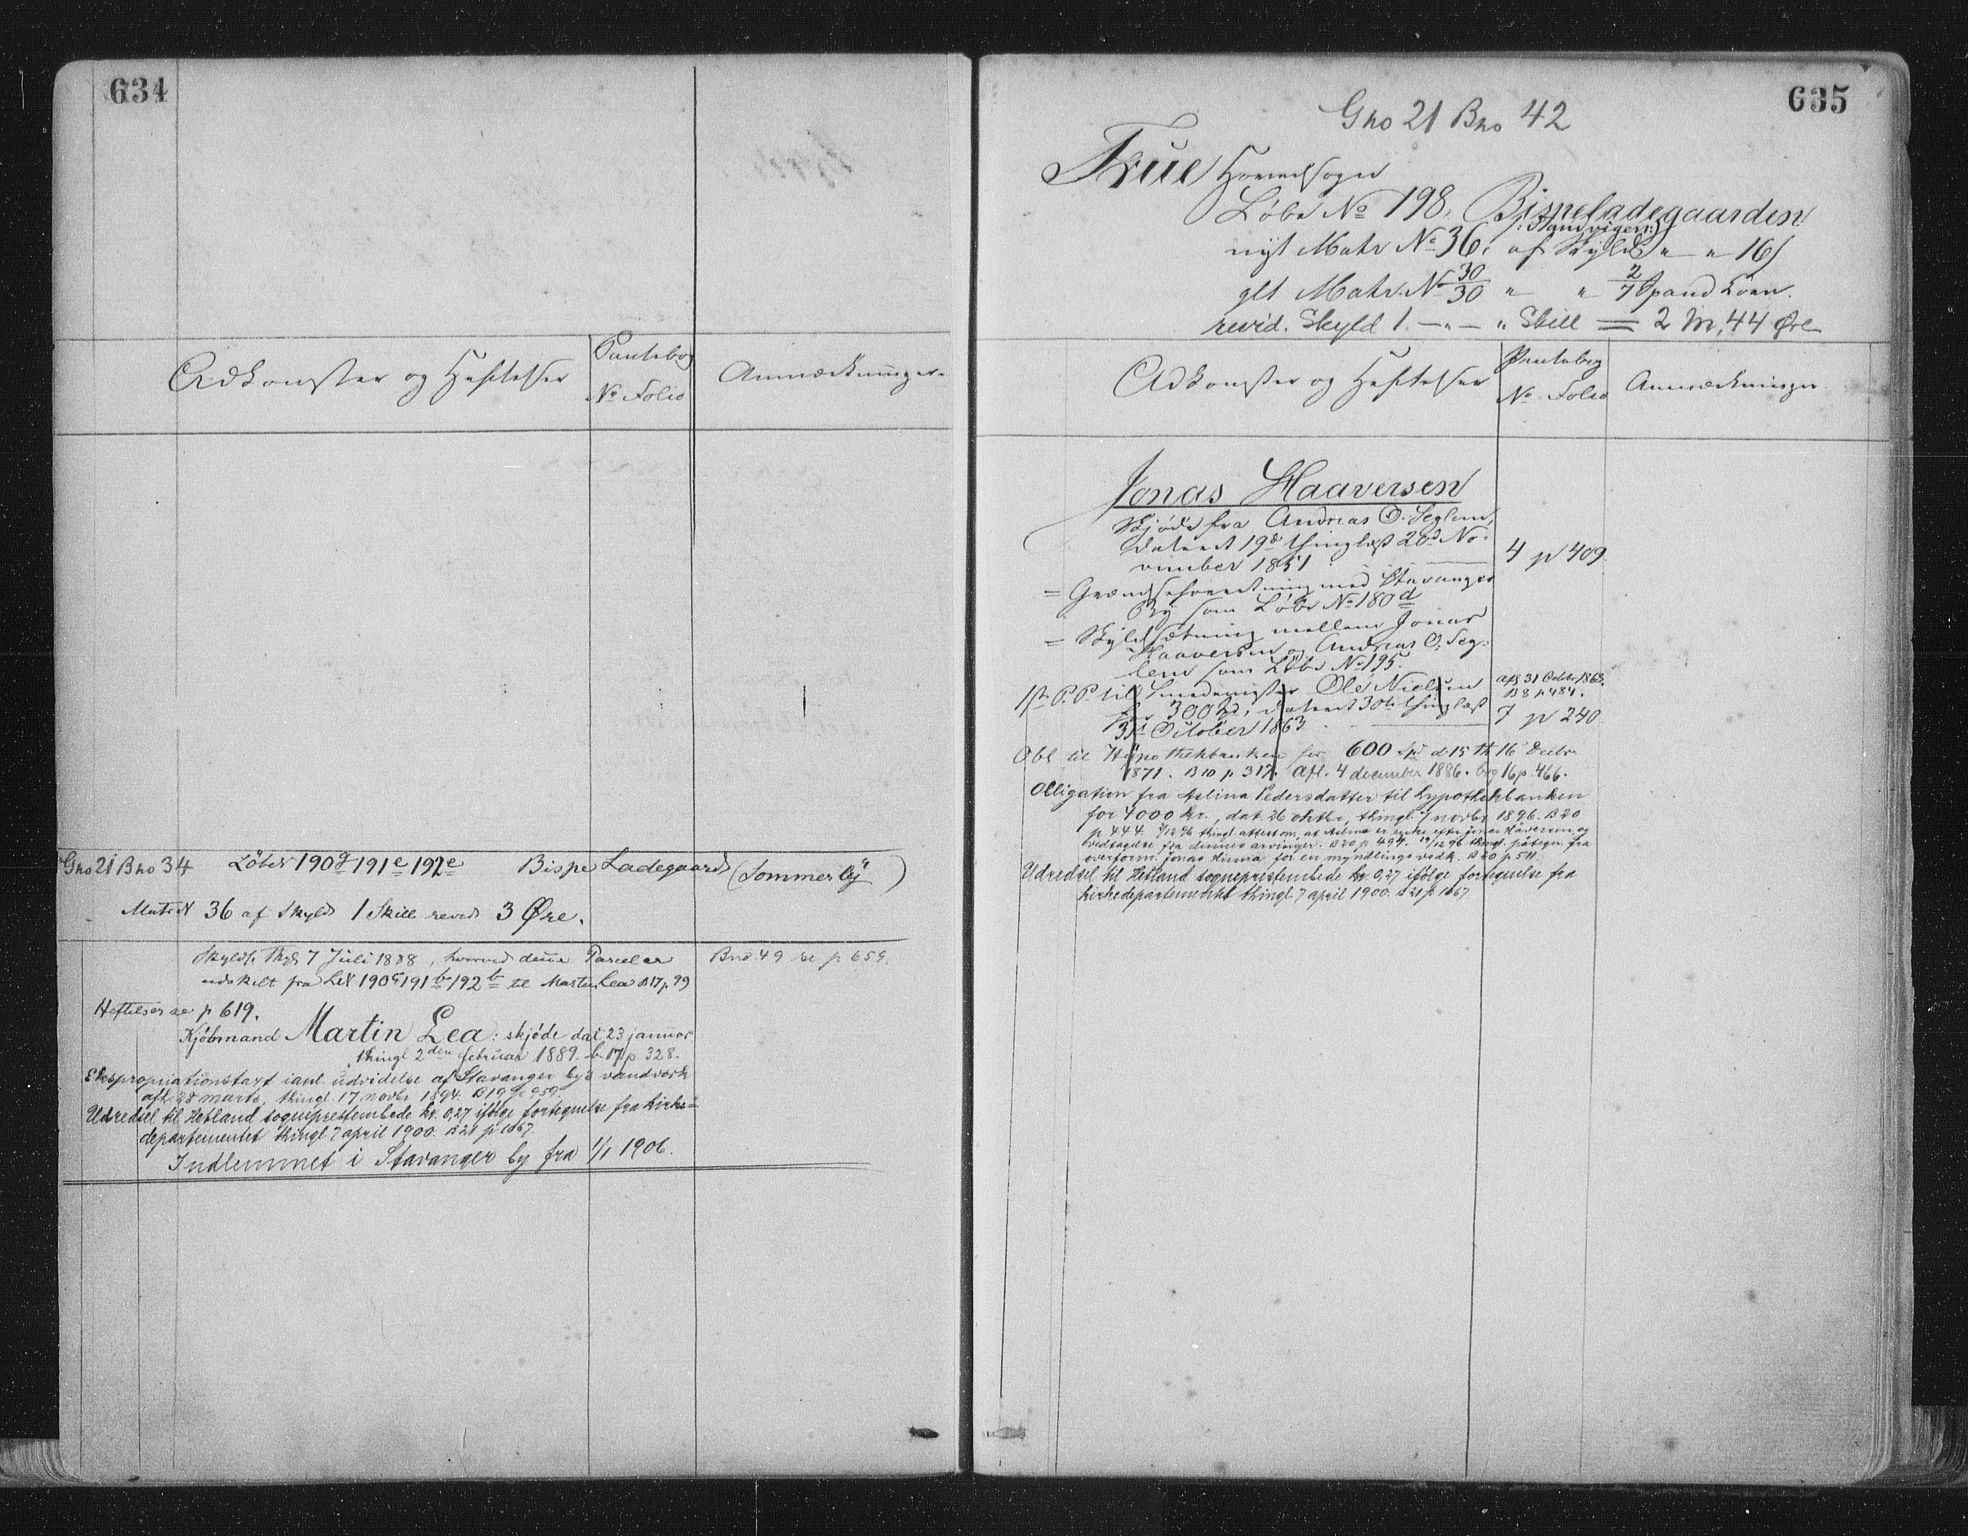 634
Adkomster og Heftelser
Pantebog
No Folio
Anmærkninger
Gno 21 Bno 34 Løbeno 190g 191e 192e Bispe Ladegaard (Sommerly")
MatrN 36 af Skyld 1 Skill revid 3 Øre.
Skylds. Thgl 7 Juli 1888, hvorved denne Parcel er
udskilt fra LN 190c 191b 192b til Martin Lea B17 p. 99
Bno 49 se p 659.
Heftelser se p 619.
Kjøbmand Martin Lea: skjøde dat 23 januar
thingl 2den februar 1889. b. 17 p. 328.
Ekspropriationstaxt i anl. udvidelse af Stavanger bys vandværk
afh. 28 marts, thingl. 17 novbr 1894. B19 p 959.
Udredsel til Hetland sogneprestembede kr. 0,27 ifølge fortegnelse fra kirke-
departementet thingl 7 april 1900. B21 p 1067.
Indlemmet i Stavanger by fra 1/1 1906.
635
Gno 21 Bno 42
Frue Hovedsogn
Løbe No 198. Bispeladegaarden
nyt Matr No 36. af Skyld " - " 16 s
glt Matr. No 30/30 " " 2/7 Spand Korn.
revid. Skyld 1. - " - " Skill = 2 M, 44 Øre
Adkomster og Heftelser
Pantebog
No Folio
Anmærkninger
Jonas Haaversen
Skjøde fra Andreas O. Seglem,
dateret 19d thinglæst 20d No-
vember 1851
4 p 409
= Grændseforretning med Stavanger
By som Løbe No 180d
= Skyldsætning mellem Jonas
Haaversen og Andreas O. Seg-
lem som Løbe No 195.
1st P. P. til Smedemester Ole Nielsen
for 300 Spd, dateret 30te thinglæst
31d October 1863
afl 31 Octbr 1868.
B 8 p 484.
7 p 240
Obl til Hypothekbanken for 600 Spd d. 15 th 16 Decbr
1871. B10 p 317. Afl. 4 december 1886. bog 16 p. 466.
Obligation fra Malina Pedersdatter til hypothekbanken
for 4000 kr., dat. 26 oktbr, thingl. 7 novbr 1896. B20
p 444. thingl. attest om, at Malina er enke efter Jonas Haaversen og
vedtagelse fra dennes arvinger. B20 p 499. 19/12 96 thingl. påtegn. fra
overform. Jonas Hinna for en myndlings vedk. B20 p 511.
Udredsel til Hetland sogneprestembede kr. 0,27 ifølge fortegnelse fra
kirkedepartementet thingl 7 april 1900. B21 p 1067.